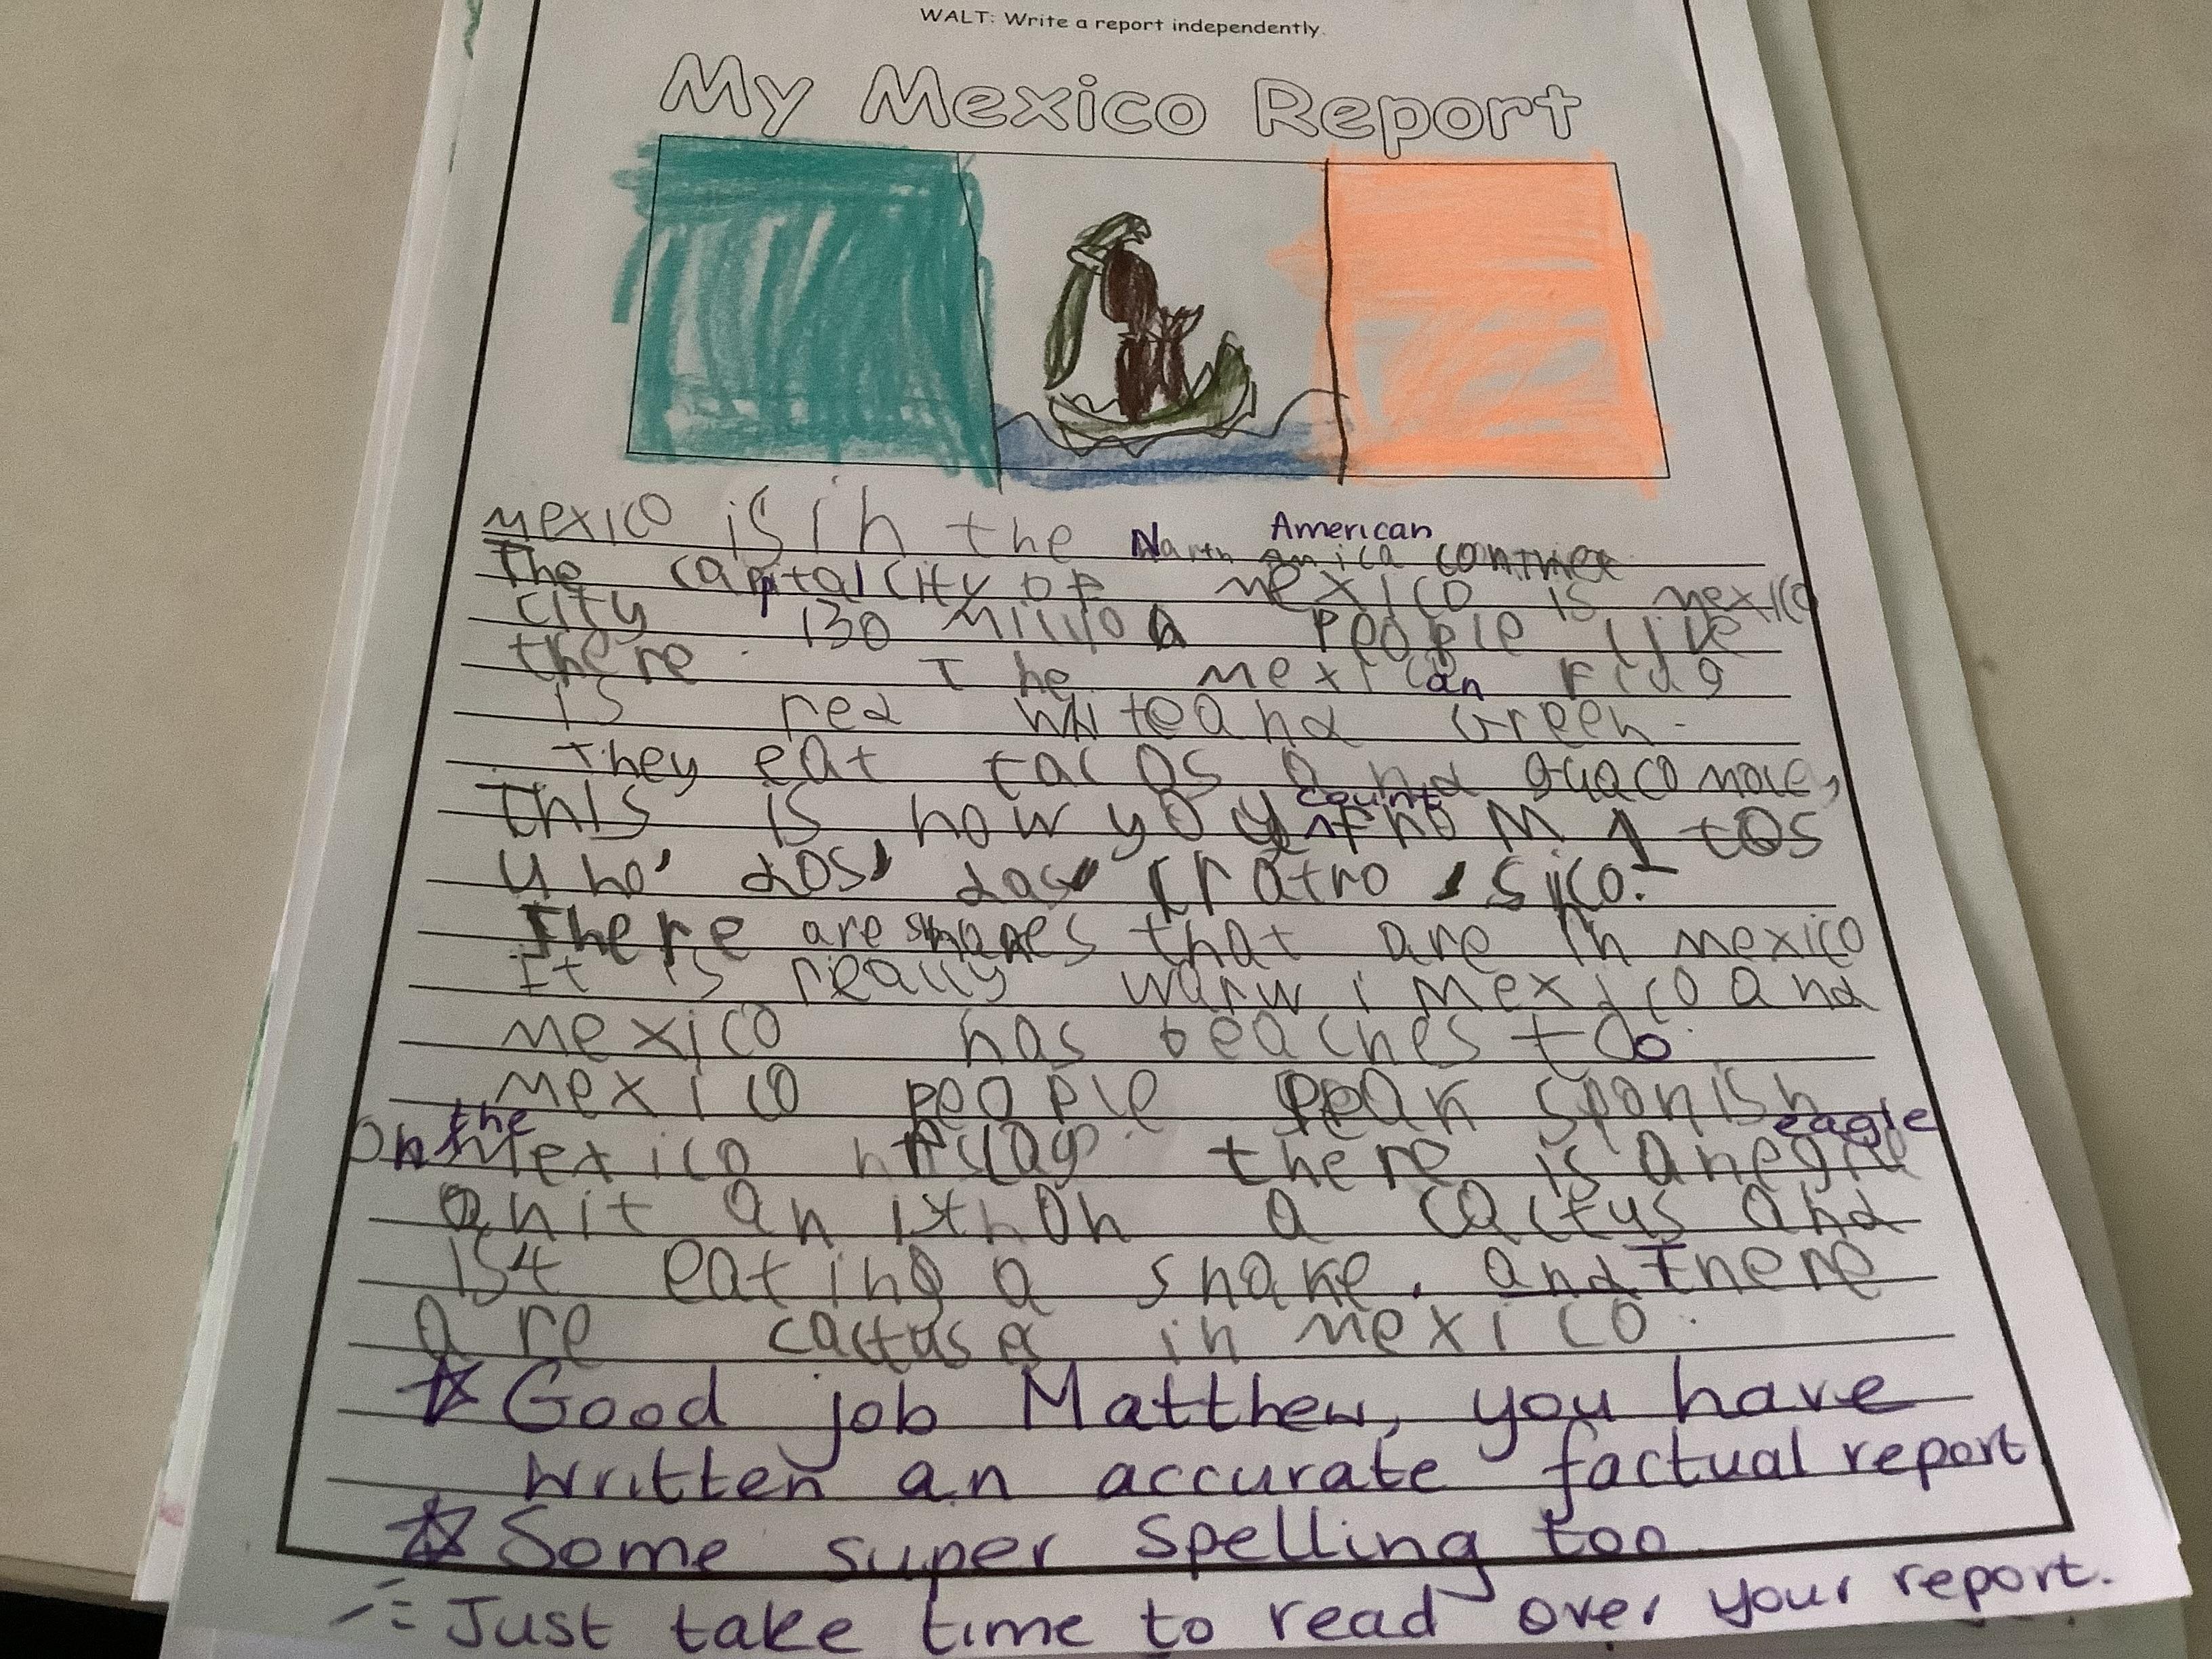 WALT: Write a report independently.
My Mexico Report
American
mexico is in the North amica contriee
The capital city of mexico is mexico
city 130 million people live
there. The mexican Flag
is red white and Green.
They eat tacos and guacomole,
count
This is how you from 1 tos
uno, dos, das, cratro, sico.
There are snakes that are in mexico
It is really warw i mexico and
mexico has beaches too.
mexico people speak spanish
the eagle
on mexico flag there is an
anit an ithon a cactus and
ist eating a snake. and There
are cactuses in mexico.
Good job Matthew, you have
written an accurate factual report
Some super spelling too
Just take time to read over your report.